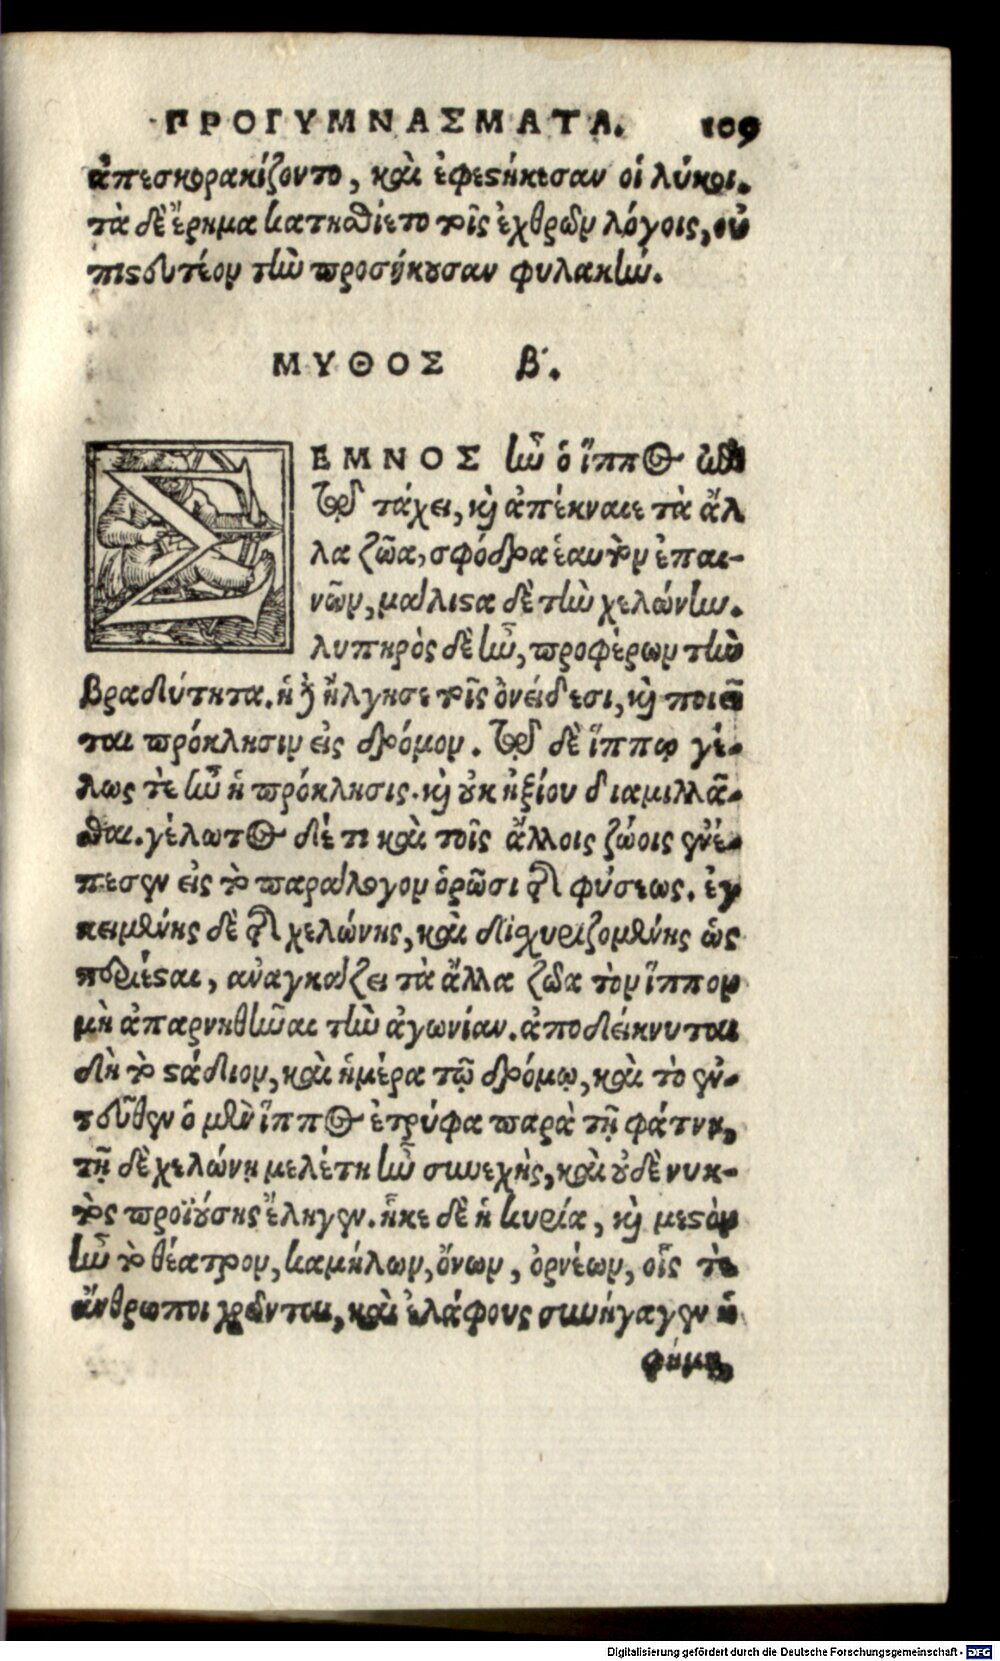 ΠΡΟΓΥΜΝΑΣΜΑΤΑ. 109
ἀπεσκορακίζοντο, καὶ ἐφεστήκεσαν οἱ λύκοι.
τὰ δὲ ἔρημα κατησθίετο τοῖς ἐχθρῶν λόγοις, οὐ
πιστευτέον τὴν προσήκουσαν φυλακήν.
ΜΥΘΟΣ β΄.
ΣΕΜΝΟΣ ἦν ὁ ἵππος ἐπὶ
τῷ τάχει, καὶ ἀπέκναιε τὰ ἄλ
λα ζῶα, σφόδρα ἑαυτὸν ἐπαι-
νῶν, μάλιστα δὲ τὴν χελώνην.
λυπηρὸς δὲ ἦν, προφέρων τὴν
βραδύτητα. ἡ δὲ ἤλγησε τοῖς ὀνείδεσι, καὶ ποιεῖ
ται πρόκλησιν εἰς δρόμον. τῷ δὲ ἵππῳ γέ-
λως τε ἦν ἡ πρόκλησις. καὶ οὐκ ἠξίου διαμιλλᾶ-
σθαι. γέλωτος δέ τι καὶ τοῖς ἄλλοις ζώοις ἐνέ-
πεσεν εἰς τὸ παράλογον ὁρῶσι τῆς φύσεως. ἐγ
κειμένης δὲ τῆς χελώνης, καὶ διϊσχυριζομένης ὡς
περιέσται, ἀναγκάζει τὰ ἄλλα ζῶα τὸν ἵππον
μὴ ἀπαρνηθῆναι τὴν ἀγωνίαν. ἀποδείκνυται
δὴ τὸ στάδιον, καὶ ἡμέρα τῷ δρόμῳ, καὶ τὸ ἐν-
τεῦθεν ὁ μὲν ἵππος ἐτρύφα παρὰ τῇ φάτνῃ,
τῇ δὲ χελώνῃ μελέτη ἦν συνεχὴς, καὶ οὐδὲ νυκ-
τὸς προϊούσης ἔληγεν. ἧκε δὲ ἡ κυρία, καὶ μεστὸν
ἦν τὸ θέατρον, καμήλων, ὄνων, ὀρνέων, οἷς τε
ἄνθρωποι χρῶνται, καὶ ἐλάφους συνήγαγεν ἡ
φήμη,
Digitalisierung gefördert durch die Deutsche Forschungsgemeinschaft - DFG